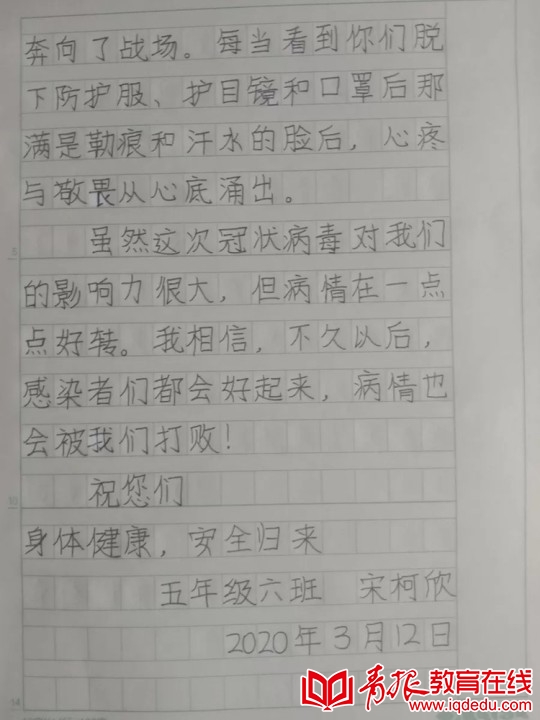 奔向了战场。每当看到你们脱
下防护服、护目镜和口罩后那
满是勒痕和汗水的脸后，心疼
与敬畏从心底涌出。
虽然这次冠状病毒对我们
的影响力很大，但病情在一点
点好转。我相信，不久以后，
感染者们都会好起来，病情也
会被我们打败！
祝您们
身体健康，安全归来
五年级六班 宋柯欣
2020年3月12日
青报教育在线
www.iqdedu.com